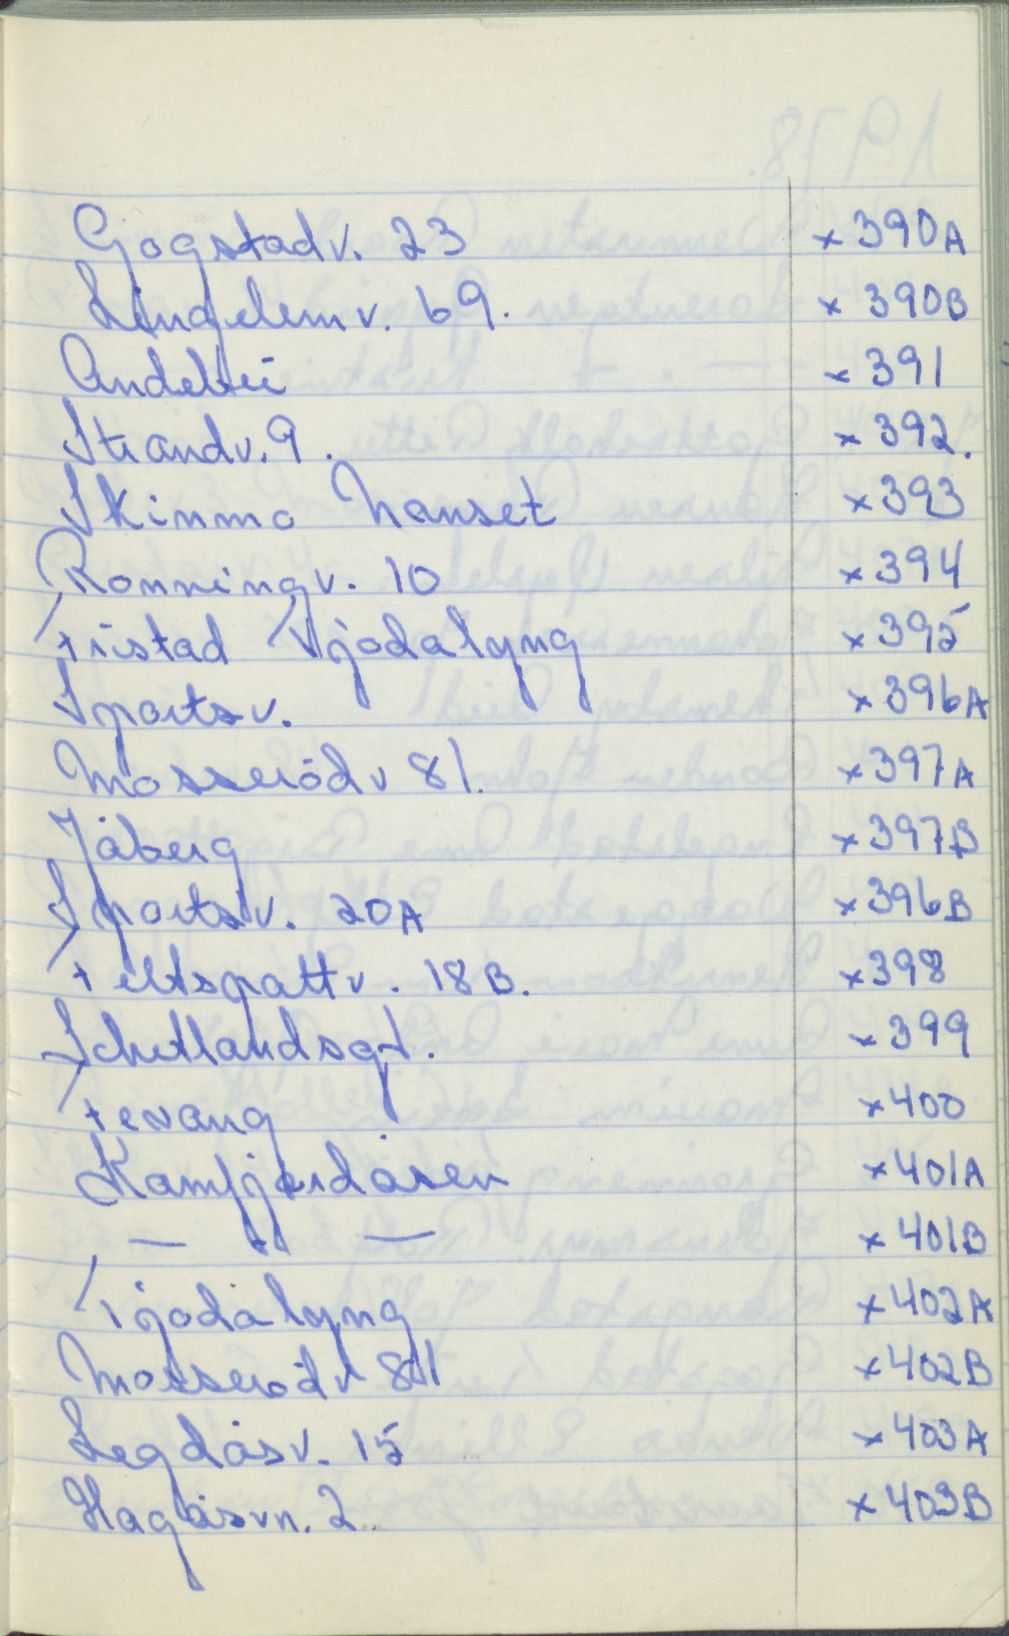 Gogstadv. 23 x 390A
Lingelemv. 69. x 390B
Andebu x 391
Strandv. 9. x 392.
Skinmo Nanset x 393
Ronningv. 10 x 394
Fristad Tjodalyng x 395
Sportsv. x 396A
Mosserödv 81. x 397A
Jåberg x 397B
Sportsv. 20A x 396B
Feltspattv. 18B. x 398
Schetlandsgt. x 399
Fevang x 400
Kamfjordåsen x 401A
— " — x 401B
Tjodalyng x 402A
Mosserödv 81 x 402B
Legdåsv. 15 x 403A
Hagåsvn. 2. x 403B